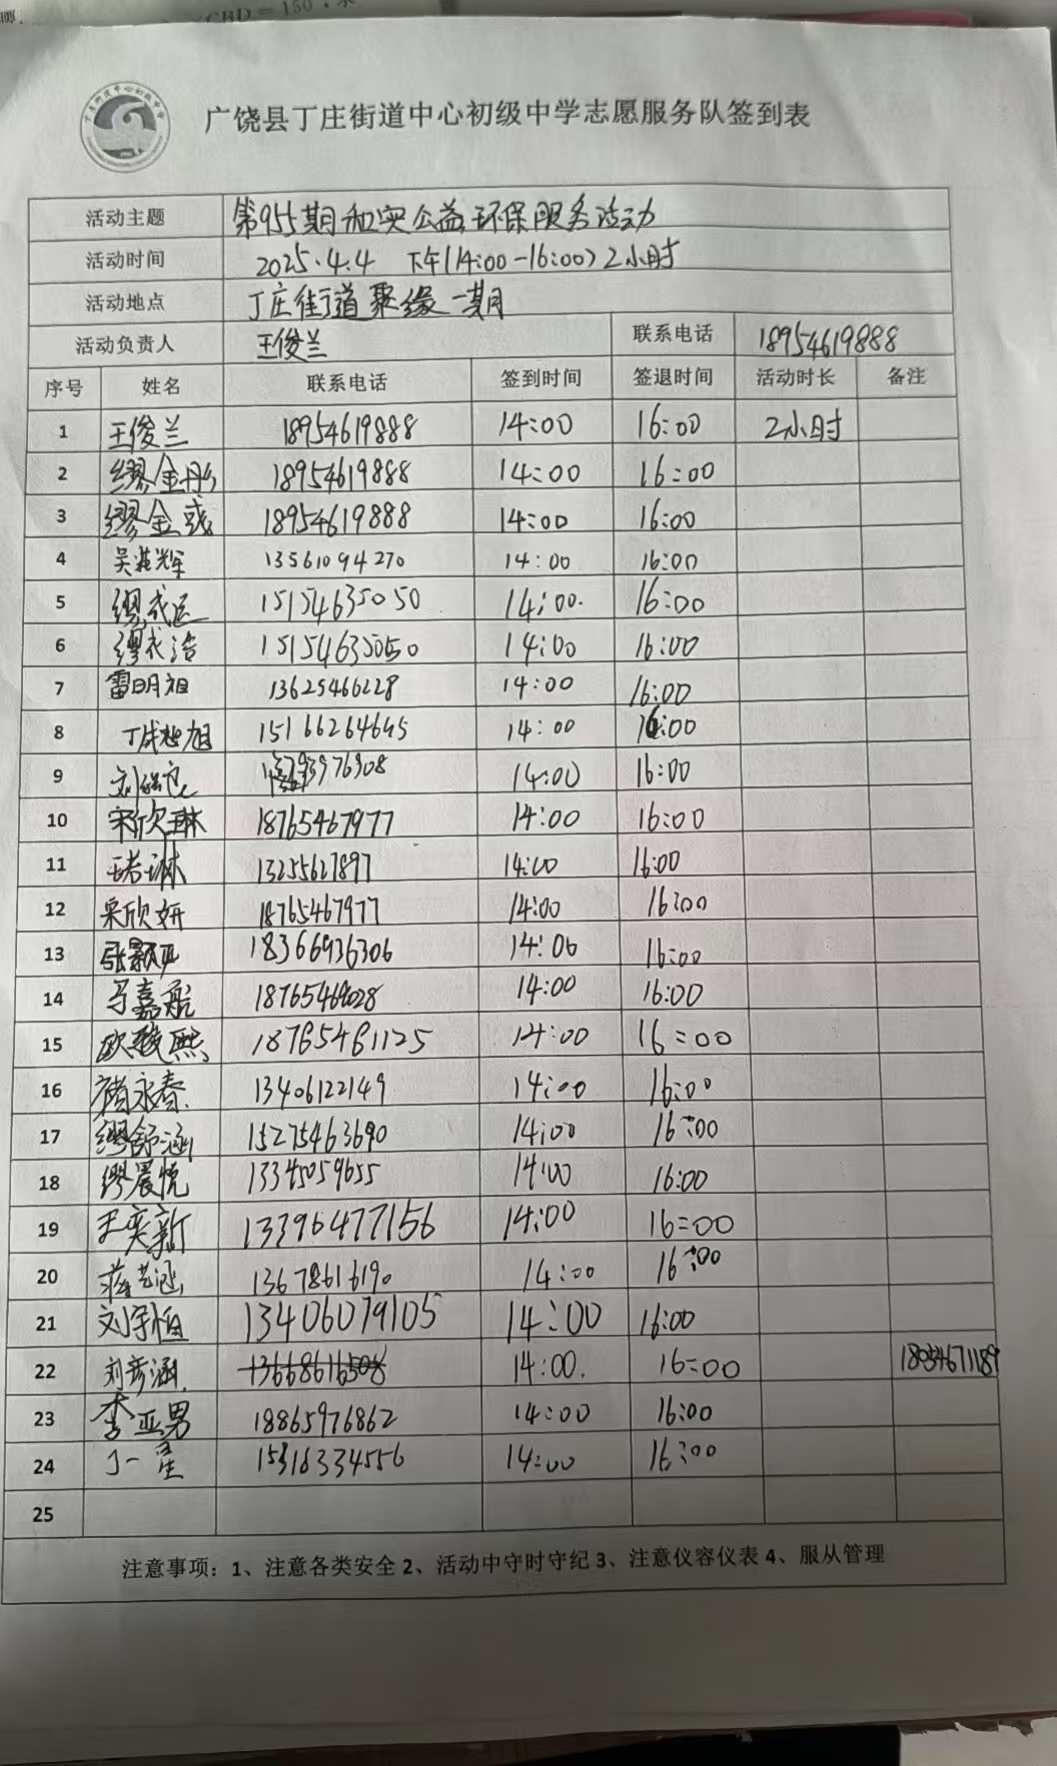 CBD=150°,求
广饶县丁庄街道中心初级中学志愿服务队签到表
活动主题 第955期和实公益环保服务活动
活动时间 2025.4.4 下午(14:00-16:00)2小时
活动地点 丁庄街道聚缘一期
活动负责人 王俊兰 联系电话 18954619888
序号 姓名 联系电话 签到时间 签退时间 活动时长 备注
1 王俊兰 18954619888 14:00 16:00 2小时
2 缪金彤 18954619888 14:00 16:00
3 缪金彧 18954619888 14:00 16:00
4 吴 辉 13561094270 14:00 16:00
5 缪成运 15154635050 14:00. 16:00
6 缪成浩 14:00 16:00
7 雷明祖 13625466228 14:00 16:00
8 丁成 旭 15166264645 14:00 16:00
9 刘 14:00 16:00
10 宋欣琳 18765467977 14:00 16:00
11 王若琳 13255627897 14:00 16:00
12 宋欣妍 18765467977 14:00 16:00
13 张颢 18366936306 14:00 16:00
14 马嘉航 14:00 16:00
15 欧 熙 18765461125 14:00 16=00
16 褚永春. 13406122149 14:00 16:00
17 缪舒涵 15275463690 14:00 16:00
18 缪晨悦 13345059655 14:00 16:00
19 王奕新 13396477156 14:00 16=00
20 蒋艺涵 13678616190 14:00 16:00
21 刘宇恒 13406079105 14:00 16:00
22 刘彦涵. 13668616508 14:00. 16=00 18954671189
23 李亚男 18865976862 14:00 16:00
24 丁一星 14:00 16:00
25
注意事项:1、注意各类安全 2、活动中守时守纪 3、注意仪容仪表 4、服从管理